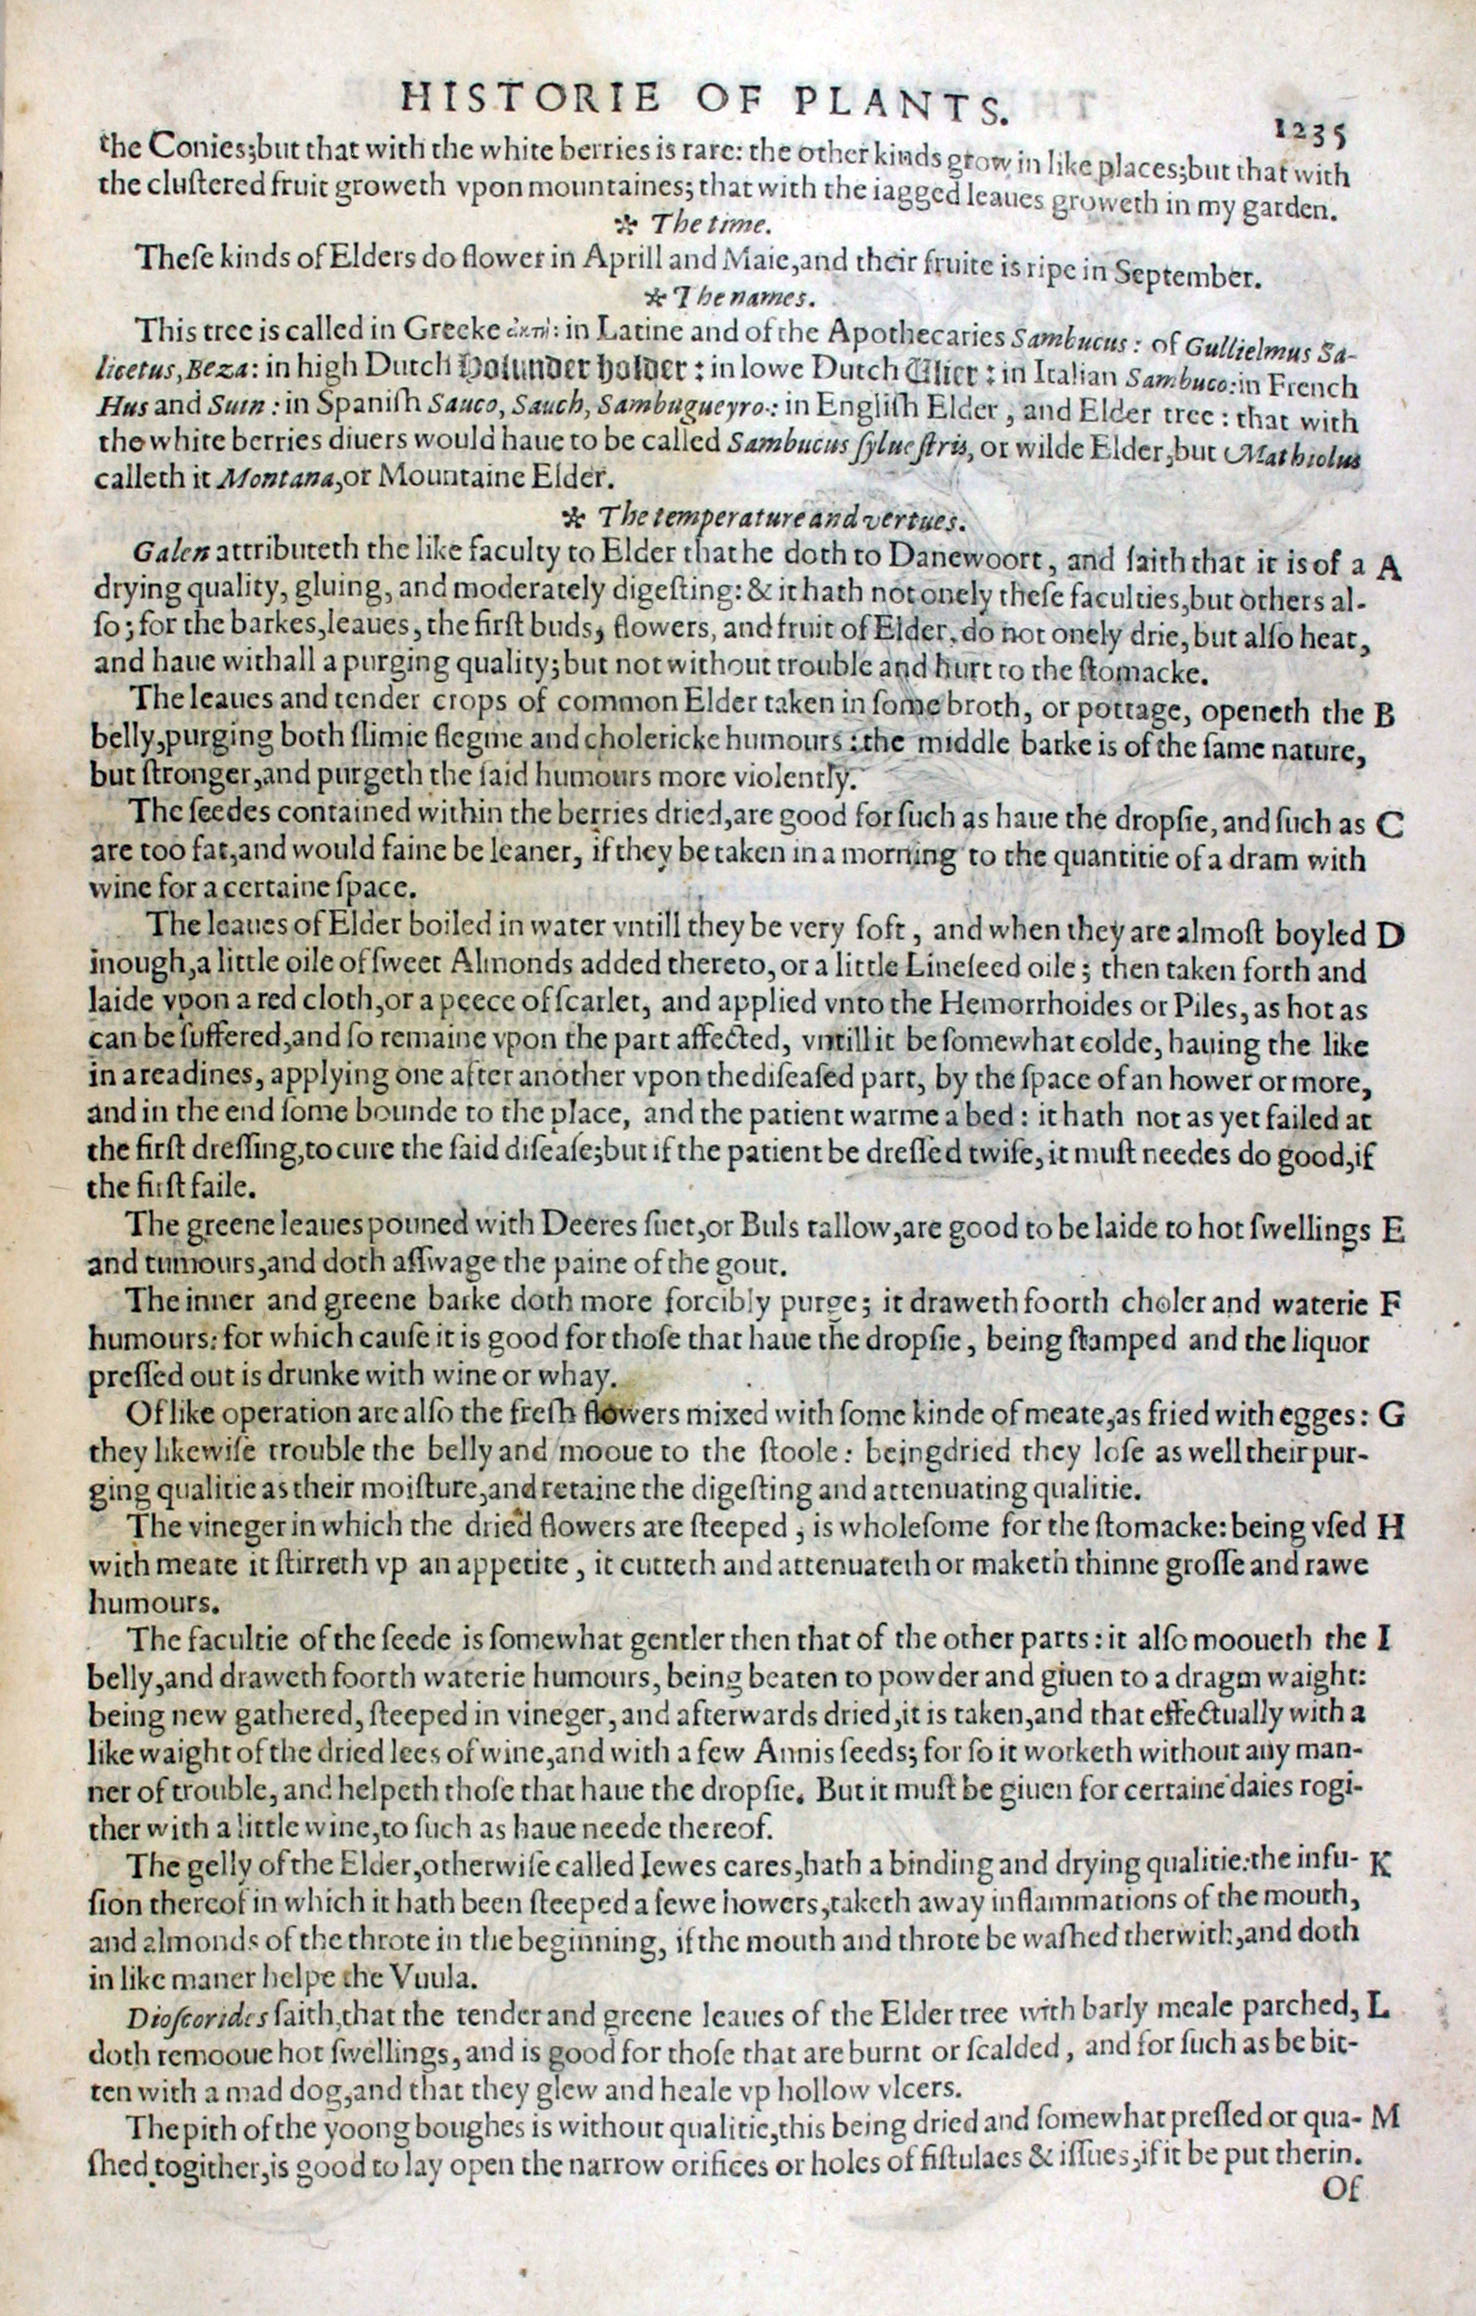 HISTORIE OF PLANTS.
1235
the Conies;but that with the white berries is rare: the other kinds grow in like places;but that with
the cluſtered fruit groweth vpon mountaines; that with the iagged leaues groweth in my garden.
✻ The time.
Theſe kinds of Elders do flower in Aprill and Maie,and their fruite is ripe in September.
✻ The names.
This tree is called in Greeke ἀκτὴ: in Latine and of the Apothecaries Sambucus: of Gullielmus Sa-
licetus, Beza: in high Dutch Holunder holder: in lowe Dutch Ulier: in Italian Sambuco: in French
Hus and Suin: in Spaniſh Sauco, Sauch, Sambugueyro: in Engliſh Elder, and Elder tree: that with
the white berries diuers would haue to be called Sambucus ſylueſtris, or wilde Elder,but Mathiolus
calleth it Montana,or Mountaine Elder.
✻ The temperature and vertues.
Galen attributeth the like faculty to Elder that he doth to Danewoort, and ſaith that it is of a A
drying quality, gluing, and moderately digeſting: & it hath not onely theſe faculties,but others al-
ſo; for the barkes,leaues, the firſt buds, flowers, and fruit of Elder, do not onely drie, but alſo heat,
and haue withall a purging quality; but not without trouble and hurt to the ſtomacke.
The leaues and tender crops of common Elder taken in ſome broth, or pottage, openeth the B
belly,purging both ſlimie flegme and cholericke humours: the middle barke is of the ſame nature,
but ſtronger,and purgeth the ſaid humours more violently.
The ſeedes contained within the berries dried,are good for ſuch as haue the dropſie, and ſuch as C
are too fat,and would faine be leaner, if they be taken in a morning to the quantitie of a dram with
wine for a certaine ſpace.
The leaues of Elder boiled in water vntill they be very ſoft, and when they are almoſt boyled D
inough,a little oile of ſweet Almonds added thereto, or a little Lineſeed oile; then taken forth and
laide vpon a red cloth,or a peece of ſcarlet, and applied vnto the Hemorrhoides or Piles, as hot as
can be ſuffered,and ſo remaine vpon the part affected, vntill it be ſomewhat colde, hauing the like
in areadines, applying one after another vpon the diſeaſed part, by the ſpace of an hower or more,
and in the end ſome bounde to the place, and the patient warme a bed: it hath not as yet failed at
the firſt dreſſing,to cure the ſaid diſeaſe;but if the patient be dreſſed twiſe, it muſt needes do good,if
the firſt faile.
The greene leaues pouned with Deeres ſuet,or Buls tallow,are good to be laide to hot ſwellings E
and tumours,and doth aſſwage the paine of the gout.
The inner and greene barke doth more forcibly purge; it draweth foorth choler and waterie F
humours: for which cauſe it is good for thoſe that haue the dropſie, being ſtamped and the liquor
preſſed out is drunke with wine or whay.
Of like operation are alſo the freſh flowers mixed with ſome kinde of meate,as fried with egges: G
they likewiſe trouble the belly and mooue to the ſtoole: being dried they loſe as well their pur-
ging qualitie as their moiſture,and retaine the digeſting and attenuating qualitie.
The vineger in which the dried flowers are ſteeped, is wholeſome for the ſtomacke: being vſed H
with meate it ſtirreth vp an appetite, it cutteth and attenuateth or maketh thinne groſſe and rawe
humours.
The facultie of the ſeede is ſomewhat gentler then that of the other parts: it alſo mooueth the I
belly,and draweth foorth waterie humours, being beaten to powder and giuen to a dragm waight:
being new gathered, ſteeped in vineger, and afterwards dried,it is taken,and that effectually with a
like waight of the dried lees of wine,and with a few Annis ſeeds; for ſo it worketh without any man-
ner of trouble, and helpeth thoſe that haue the dropſie. But it muſt be giuen for certaine daies togi-
ther with a little wine,to ſuch as haue neede thereof.
The gelly of the Elder,otherwiſe called Iewes eares,hath a binding and drying qualitie: the infu- K
ſion thereof in which it hath been ſteeped a fewe howers,taketh away inflammations of the mouth,
and almonds of the throte in the beginning, if the mouth and throte be waſhed therwith,and doth
in like maner helpe the Vuula.
Dioſcorides ſaith,that the tender and greene leaues of the Elder tree with barly meale parched, L
doth remooue hot ſwellings, and is good for thoſe that are burnt or ſcalded, and for ſuch as be bit-
ten with a mad dog,and that they glew and heale vp hollow vlcers.
The pith of the yoong boughes is without qualitie,this being dried and ſomewhat preſſed or qua- M
ſhed togither,is good to lay open the narrow orifices or holes of fiſtulaes & iſſues,if it be put therin.
Of